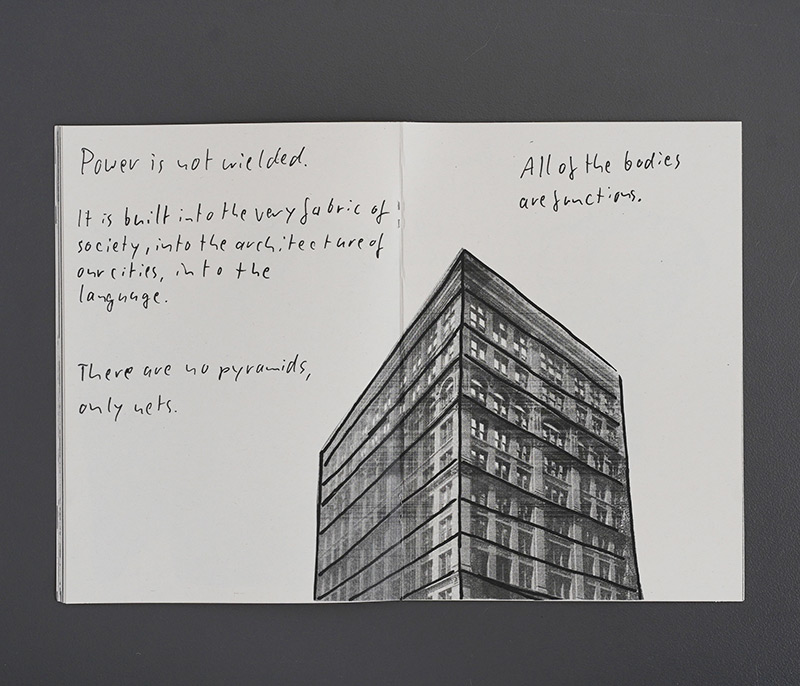 Power is not wielded.
It is built into the very fabric of
society, into the architecture of
our cities, into the
language.
There are no pyramids,
only nets.
All of the bodies
are functions.